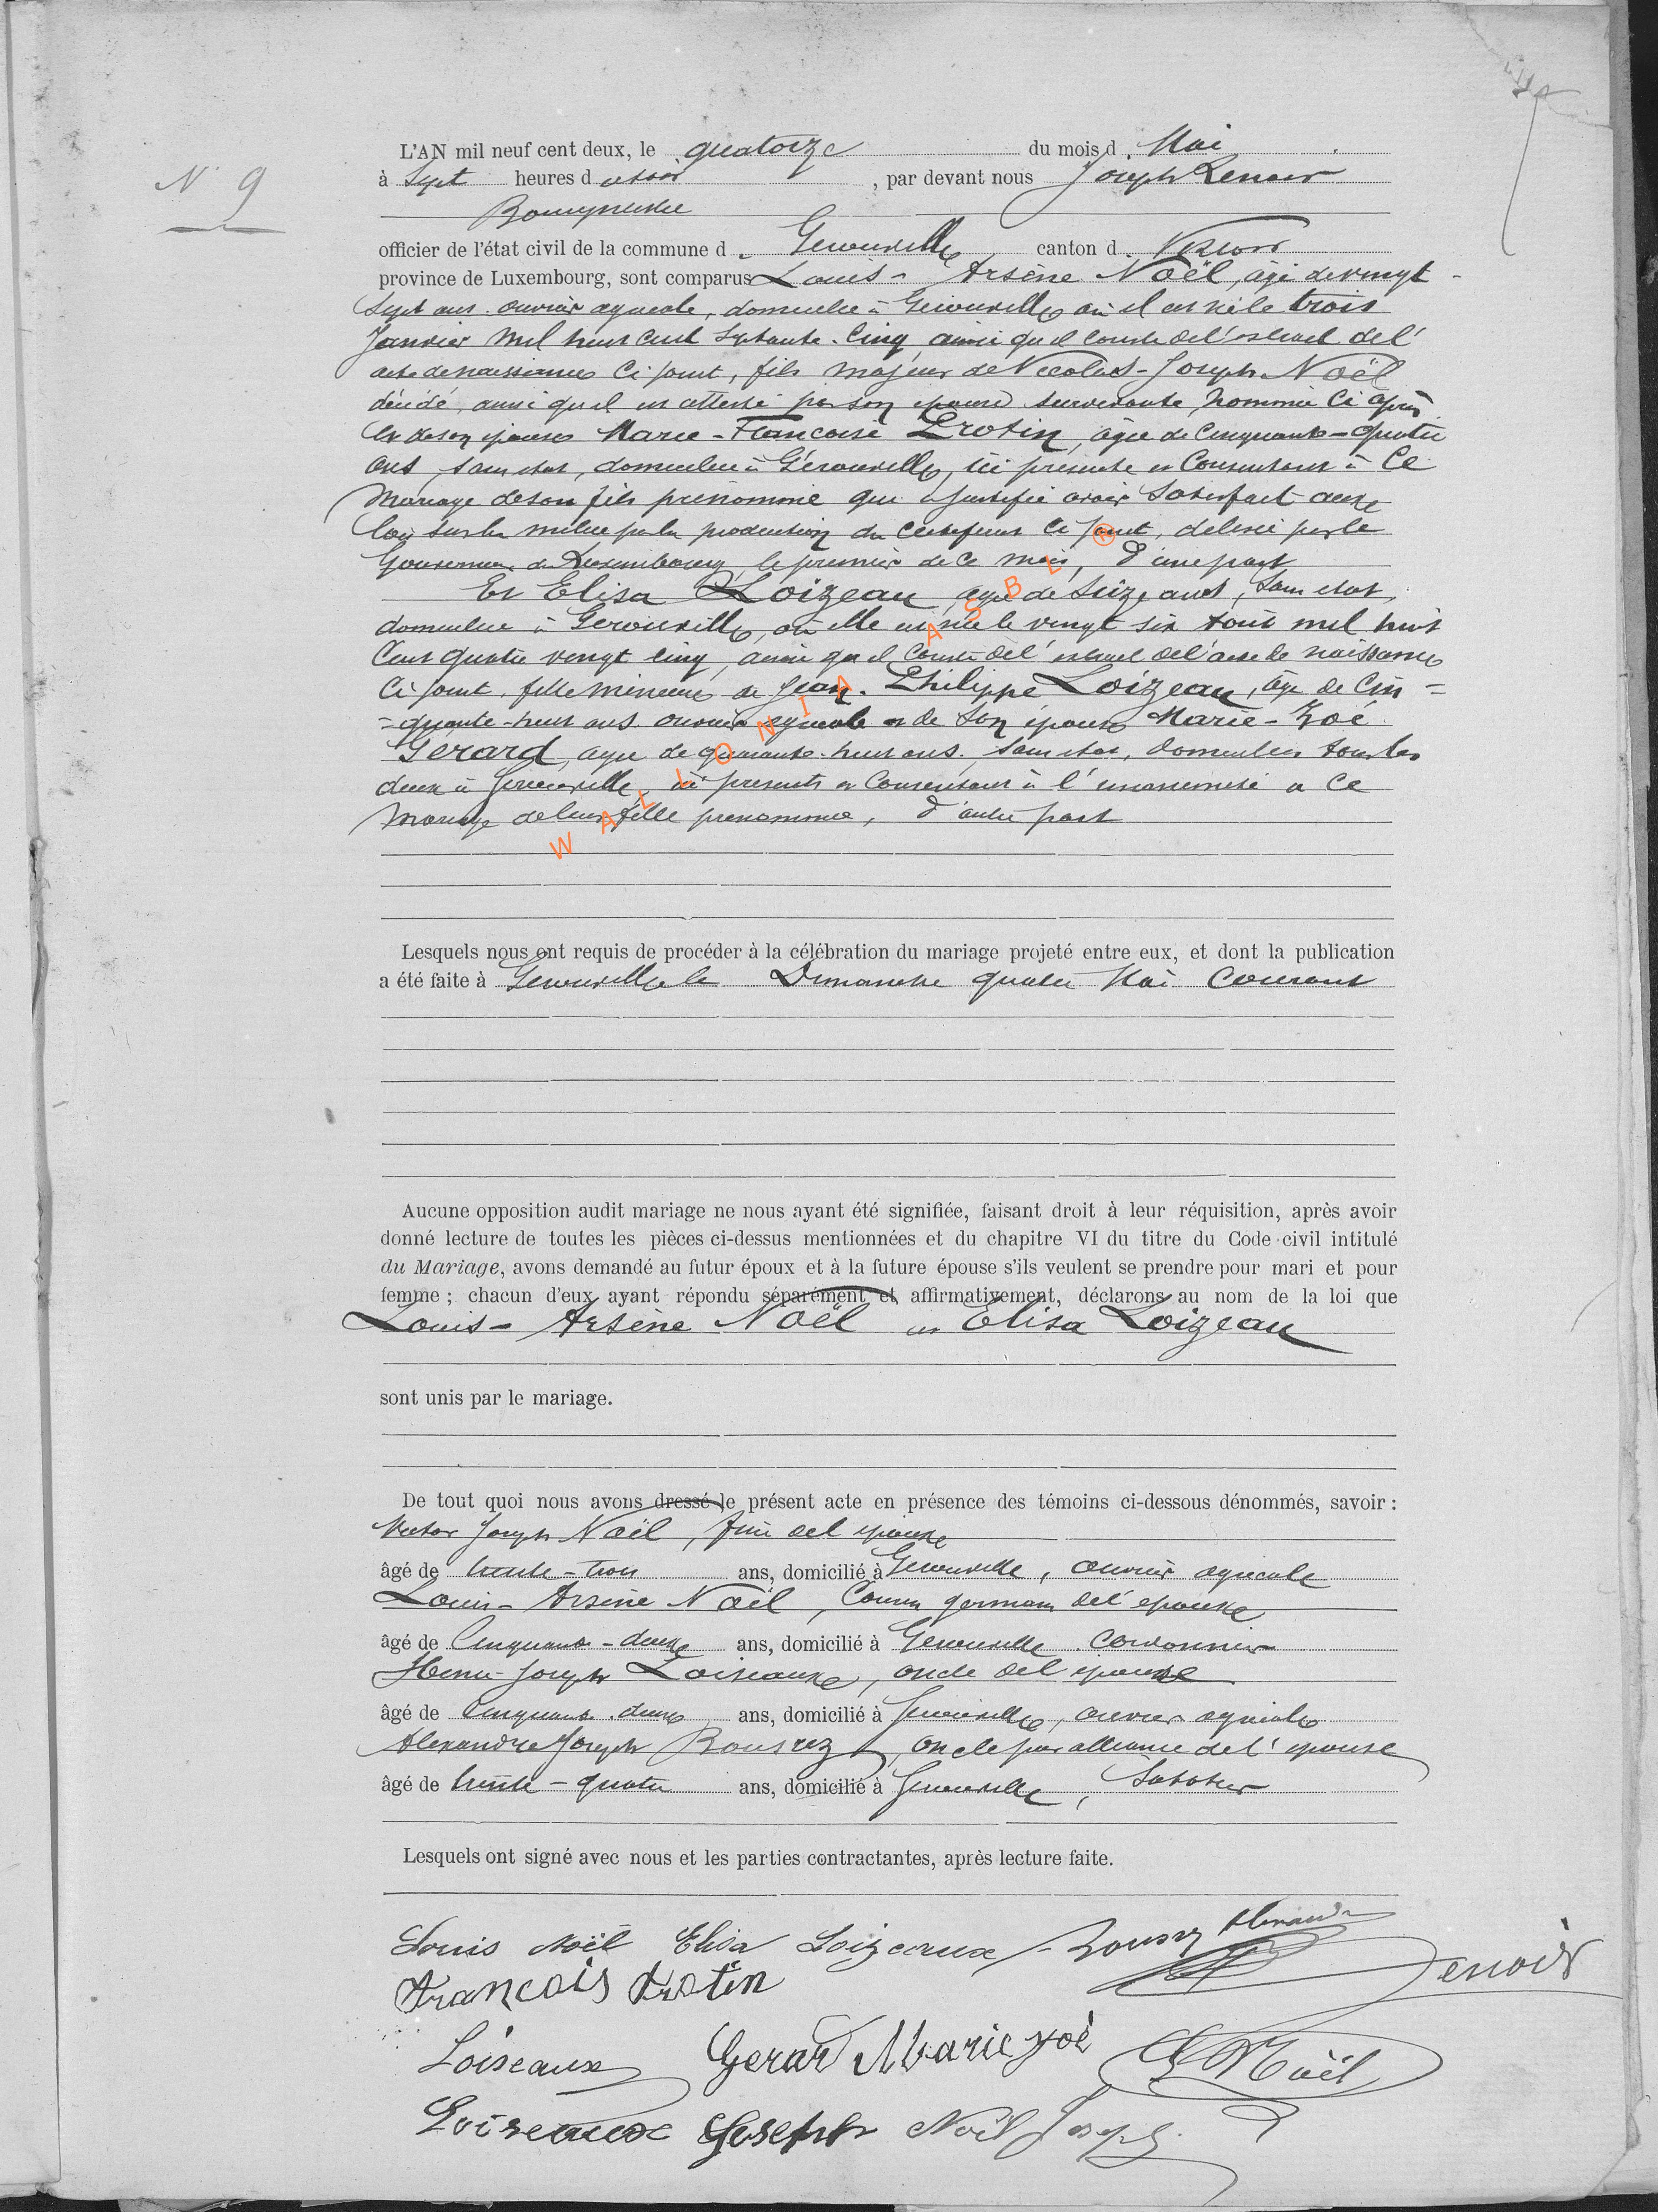 N° 9
L'AN mil neuf cent deux, le quatorze du mois d. Mai
à Sept heures du soir, par devant nous Joseph Lenoir
Bourgmestre
officier de l'état civil de la commune d. Gerouville canton d. Virton
province de Luxembourg, sont comparus Louis - Arsène Noël, âgé de vingt -
Sept ans. ouvrier agricole, domicilié à Gérouville où il est né le trois
Janvier Mil huit cent septante-cinq, ainsi qu'il conste de l'extrait de l'
acte de naissance ci-joint, fils majeur de Nicolas-Joseph Noël
décédé, ainsi qu'il est attesté par son épouse survivante, nommée ci après
et de son épouse Marie-Françoise Trotin, âgée de cinquante-quatre
ans, sans état, domiciliée à Gérouville, ici présente et consentant à ce
mariage de son fils prénommé qui a justifié avoir satisfait aux
lois sur la milice par la production du certificat ci joint, délivré par le
Gouverneur du Luxembourg, le premier de ce mois, d'une part
Et Elisa Loizeau, âgée de seize ans, sans état,
domiciliée à Gerouville, où elle est née le vingt six Août mil huit
cent quatre vingt cinq, ainsi qu'il conste de l'extrait de l'acte de naissance
ci joint. fille mineure de Jean-Philippe Loizeau, âgé de cin =
= quante-huit ans. ouvrier agricole et de son épouse Marie-Zoé
Gérard, âgée de quarante-huit ans, sans état, domiciliés tous les
deux à Gérouville, ici présents et consentant à l'unanimité a ce
mariage de leur fille prénommée, d'autre part
WALLONIA ASBL ®
Lesquels nous ont requis de procéder à la célébration du mariage projeté entre eux, et dont la publication
a été faite à Gerouville le Dimanche quatre Mai courant
Aucune opposition audit mariage ne nous ayant été signifiée, faisant droit à leur réquisition, après avoir
donné lecture de toutes les pièces ci-dessus mentionnées et du chapitre VI du titre du Code civil intitulé
du Mariage, avons demandé au futur époux et à la future épouse s'ils veulent se prendre pour mari et pour
femme ; chacun d'eux ayant répondu séparément et affirmativement, déclarons au nom de la loi que
Louis - Arsène Noël et Elisa Loizeau
sont unis par le mariage.
De tout quoi nous avons dressé le présent acte en présence des témoins ci-dessous dénommés, savoir :
Victor Joseph Noël, frère de l'époux
âgé de trente-trois ans, domicilié à Gerouville, ouvrier agricole
Louis - Arsène Noël, Cousin germain de l'époux
âgé de Cinquante-deux ans, domicilié à Gerouville. Cordonnier
Henri-Joseph Loiseaux, oncle de l'épouse
âgé de Cinquante-deux ans, domicilié à Gerouville, ouvrier agricole
Alexandre Joseph Rousrez, oncle par alliance de l'épouse
âgé de trente-quatre ans, domicilié à Gerouville, Sabotier
Lesquels ont signé avec nous et les parties contractantes, après lecture faite.
Louis Noël Elisa Loizeaux Alexandre
Lenoir
François trotin
Loiseaux Gerard Marie Zoé Noël
Loiseaux Joseph Noël Joseph